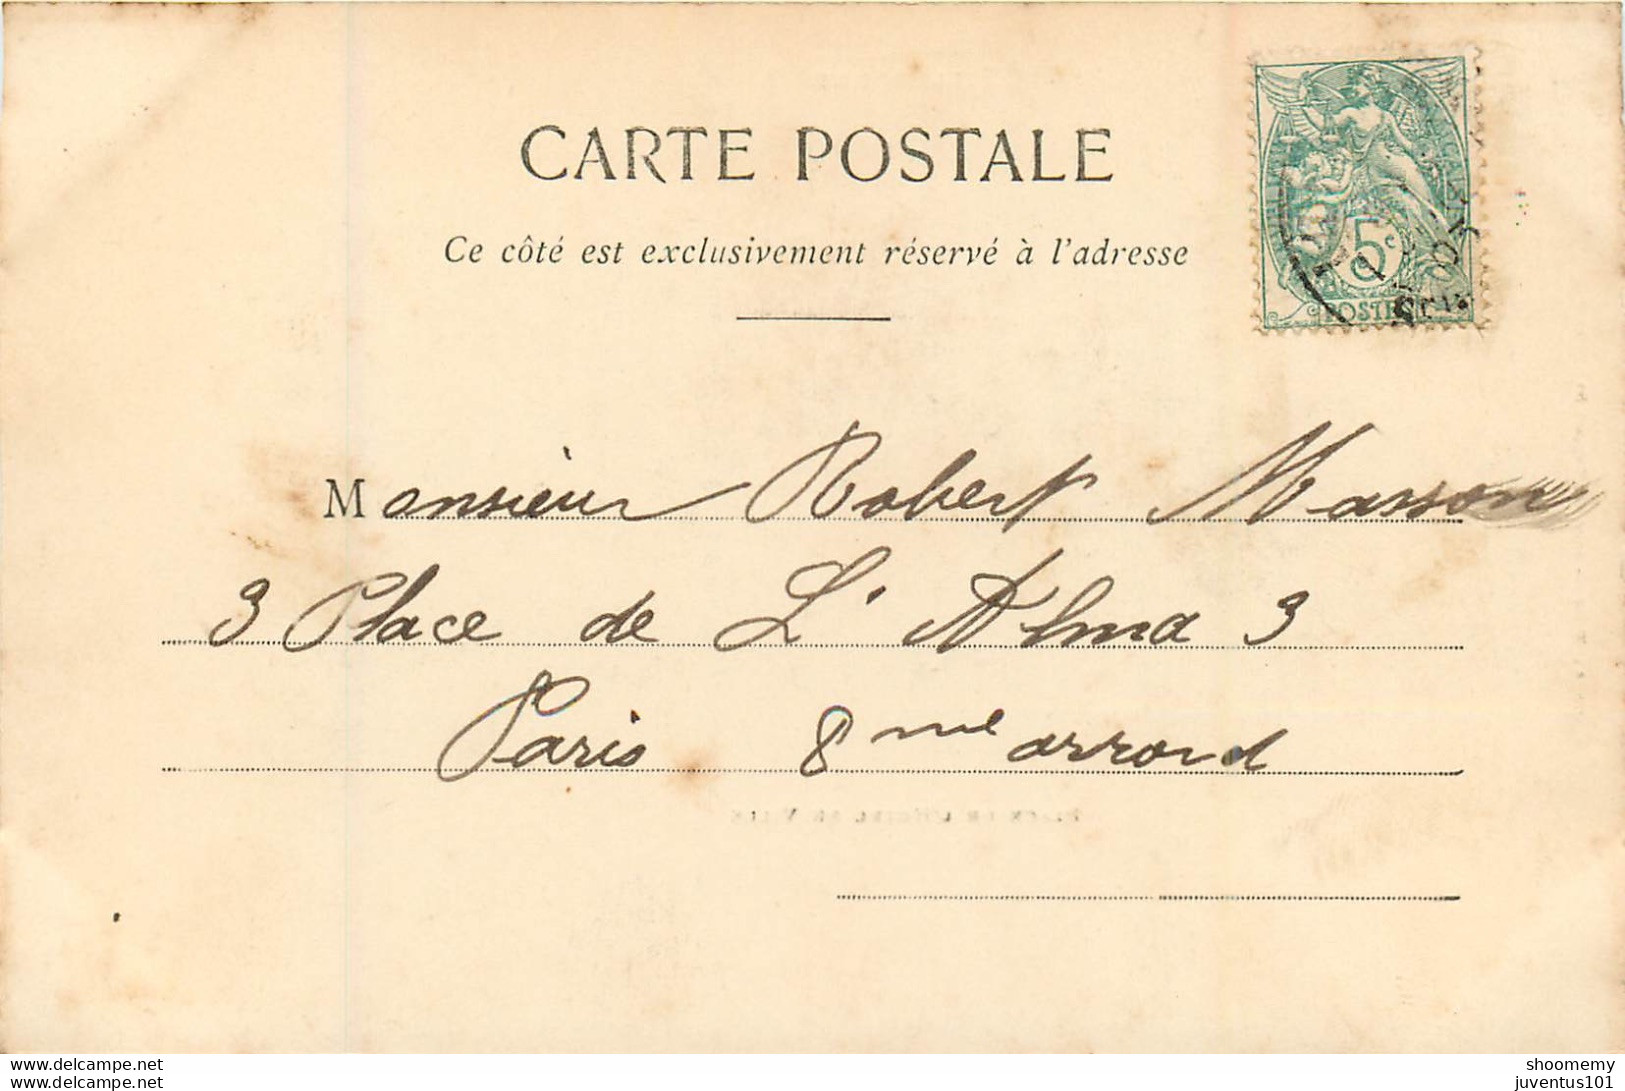 CARTE POSTALE
Ce côté est exclusivement réservé à l'adresse
5c
POSTES
Monsieur Robert Masson
3 Place de L'Alma 3
Paris 8me arrond
www.delcampe.net
www.delcampe.net
shoomemy
juventus101